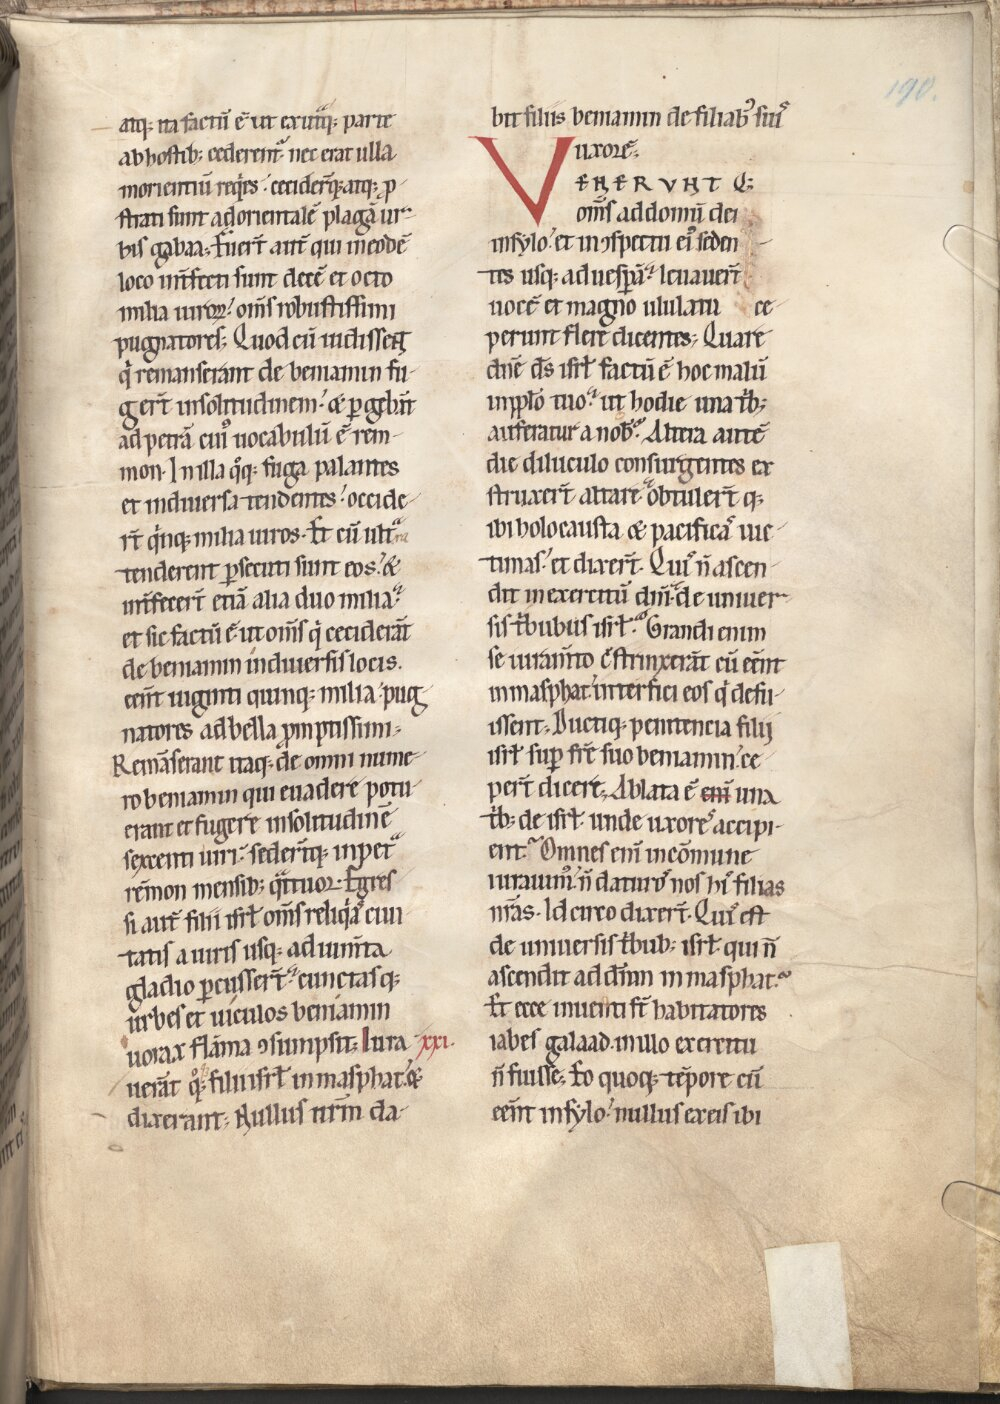 190.
atq; ita factū ē ut ex utͣq; parte
ab hostib; cederent᷑ nec erat ulla
morientiū reqͥes. cecider̄q; atq; ꝓ
strati sunt ad orientalē plagā ur
bis gabaa; Fuer̄t aut̄ qui in eodē
loco int̄fecti sunt decē et octo
milia uiroꝝ. om̄s robustissimi
pugnatores; Quod cū uidissent
qͥ remanserant de beniamin fu
ger̄t in solitudinem. & ꝑgeb̄nt
ad petrā cuiꝰ uocabulū ē rem
mon. In illa qͦq; fuga palantes
et in diuersa tendentes. occide
rt̄ qͥnq; milia uiros. Et cū ultͣ
tenderent ꝑsecuti sunt eos. &
int̄fecer̄t etiā alia duo milia.
et sic factū ē. ut om̄s qͥ ceciderāt
de beniamin in diuersis locis.
eēnt uiginti quinq; milia. pug
natores ad bella ꝓmptissimi;
Remāserant itaq; de omni nume
ro beniamin qui euadere potu
erant et fugere in solitudinē
sexcenti uiri. seder̄tq; in petͣ
rēmon mensib; qͣttuor. Egres
si aut̄ filii isrl̄ om̄s reliqͥas ciui
tatis a uiris usq; ad ium̄ta
gladio ꝑcusser̄t. cunctasq;
urbes et uiculos beniamin
uorax flāma ꝯsumpsit; Iura xxi.
uerāt qͦq; filii isrl̄ in masphat. &
dixerant; Nullus nr̄m da
bit filiis beniamin de filiab; suis
uxorē;
VENERUNT Q;
om̄s ad domū dei
in sylo. et in ꝯspectu eiꝰ seden
tes usq; ad uesꝑā. leuauer̄t
uocē et magno ululatu ce
perunt flere dicentes; Quare
dn̄e dś isrl̄ factū ē hoc malū
in pplo tuo. ut hodie una tͥb;
auferatur a nob̄. Altera autē
die diluculo consurgentes ex
struxer̄t altare. obtuler̄t q;
ibi holocausta & pacificas uic
timas. et dixer̄t. Quis n̄ ascen
dit in exercitū dn̄i. de uniuer
sis tͥbubus isrl̄. Grandi enim
se iuram̄to ꝯstrinxerāt cū eēnt
in masphat. interfici eos qͥ defu
issent; Ductiq; penitencia filii
isrl̄ suꝑ fr̄e suo beniamin. ce
per̄t dicere; Ablata ē eni̅ una
tͥb; de isrl̄. unde uxores accipi
ent. Omnes eni̅ in cōmune
iurauimꝰ. n̄ daturos nos his filias
nr̄as. Idcirco dixer̄t. Quis est
de uniuersis tͥbub; isrl̄ qui n̄
ascendit ad dn̄m in masphat.
Et ecce inuenti st̄ habitatores
iabes galaad. in illo exercitu
n̄ fuisse; Eo quoq; tēpore cū
eēnt in sylo. nullus ex eis ibi